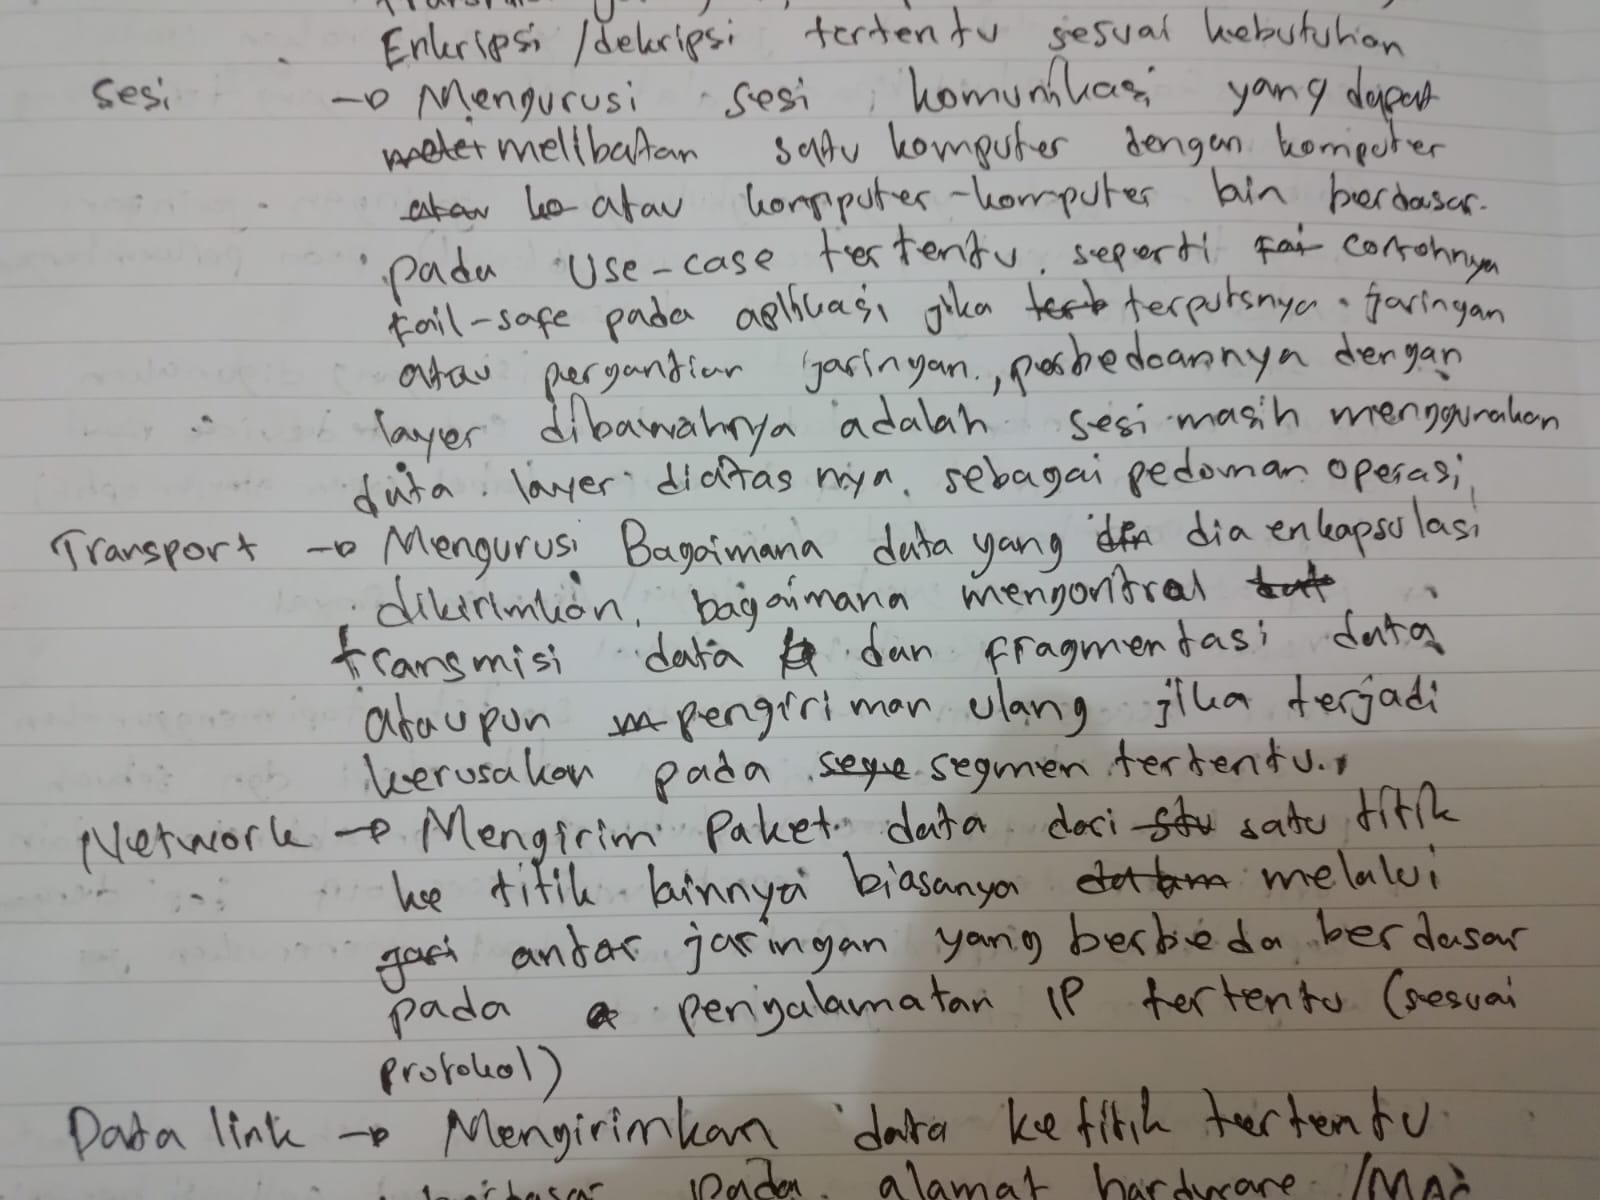 Enkripsi /dekripsi tertentu sesuai kebutuhan
Sesi → Mengurusi sesi komunikasi yang dapat
meter melibatan satu komputer dengan komputer
atau ke atau komputer-komputer lain berdasar
pada Use-case tertentu. seperti fai contohnya
fail-safe pada aplikasi jika terb terputsnya jaringan
atau pergantian jaringan, perbedaannya dengan
layer dibawahnya adalah sesi masih menggunakan
data layer diatas nya sebagai pedoman operasi
Transport → Mengurusi Bagaimana data yang dia enkapsulasi
dikirimkan, bagaimana mengontrol tat
transmisi data dan fragmentasi data
ataupun m pengiriman ulang jika terjadi
kerusakan pada segme segmen tertentu.
Network → Mengirim Paket data dari stu satu titik
ke titik lainnya biasanya dalam melalui
jari antar jaringan yang berbeda berdasar
pada a pengalamatan IP tertentu (sesuai
protokol)
Data link → Mengirimkan data ke titik tertentu
pada alamat hardware /MAC